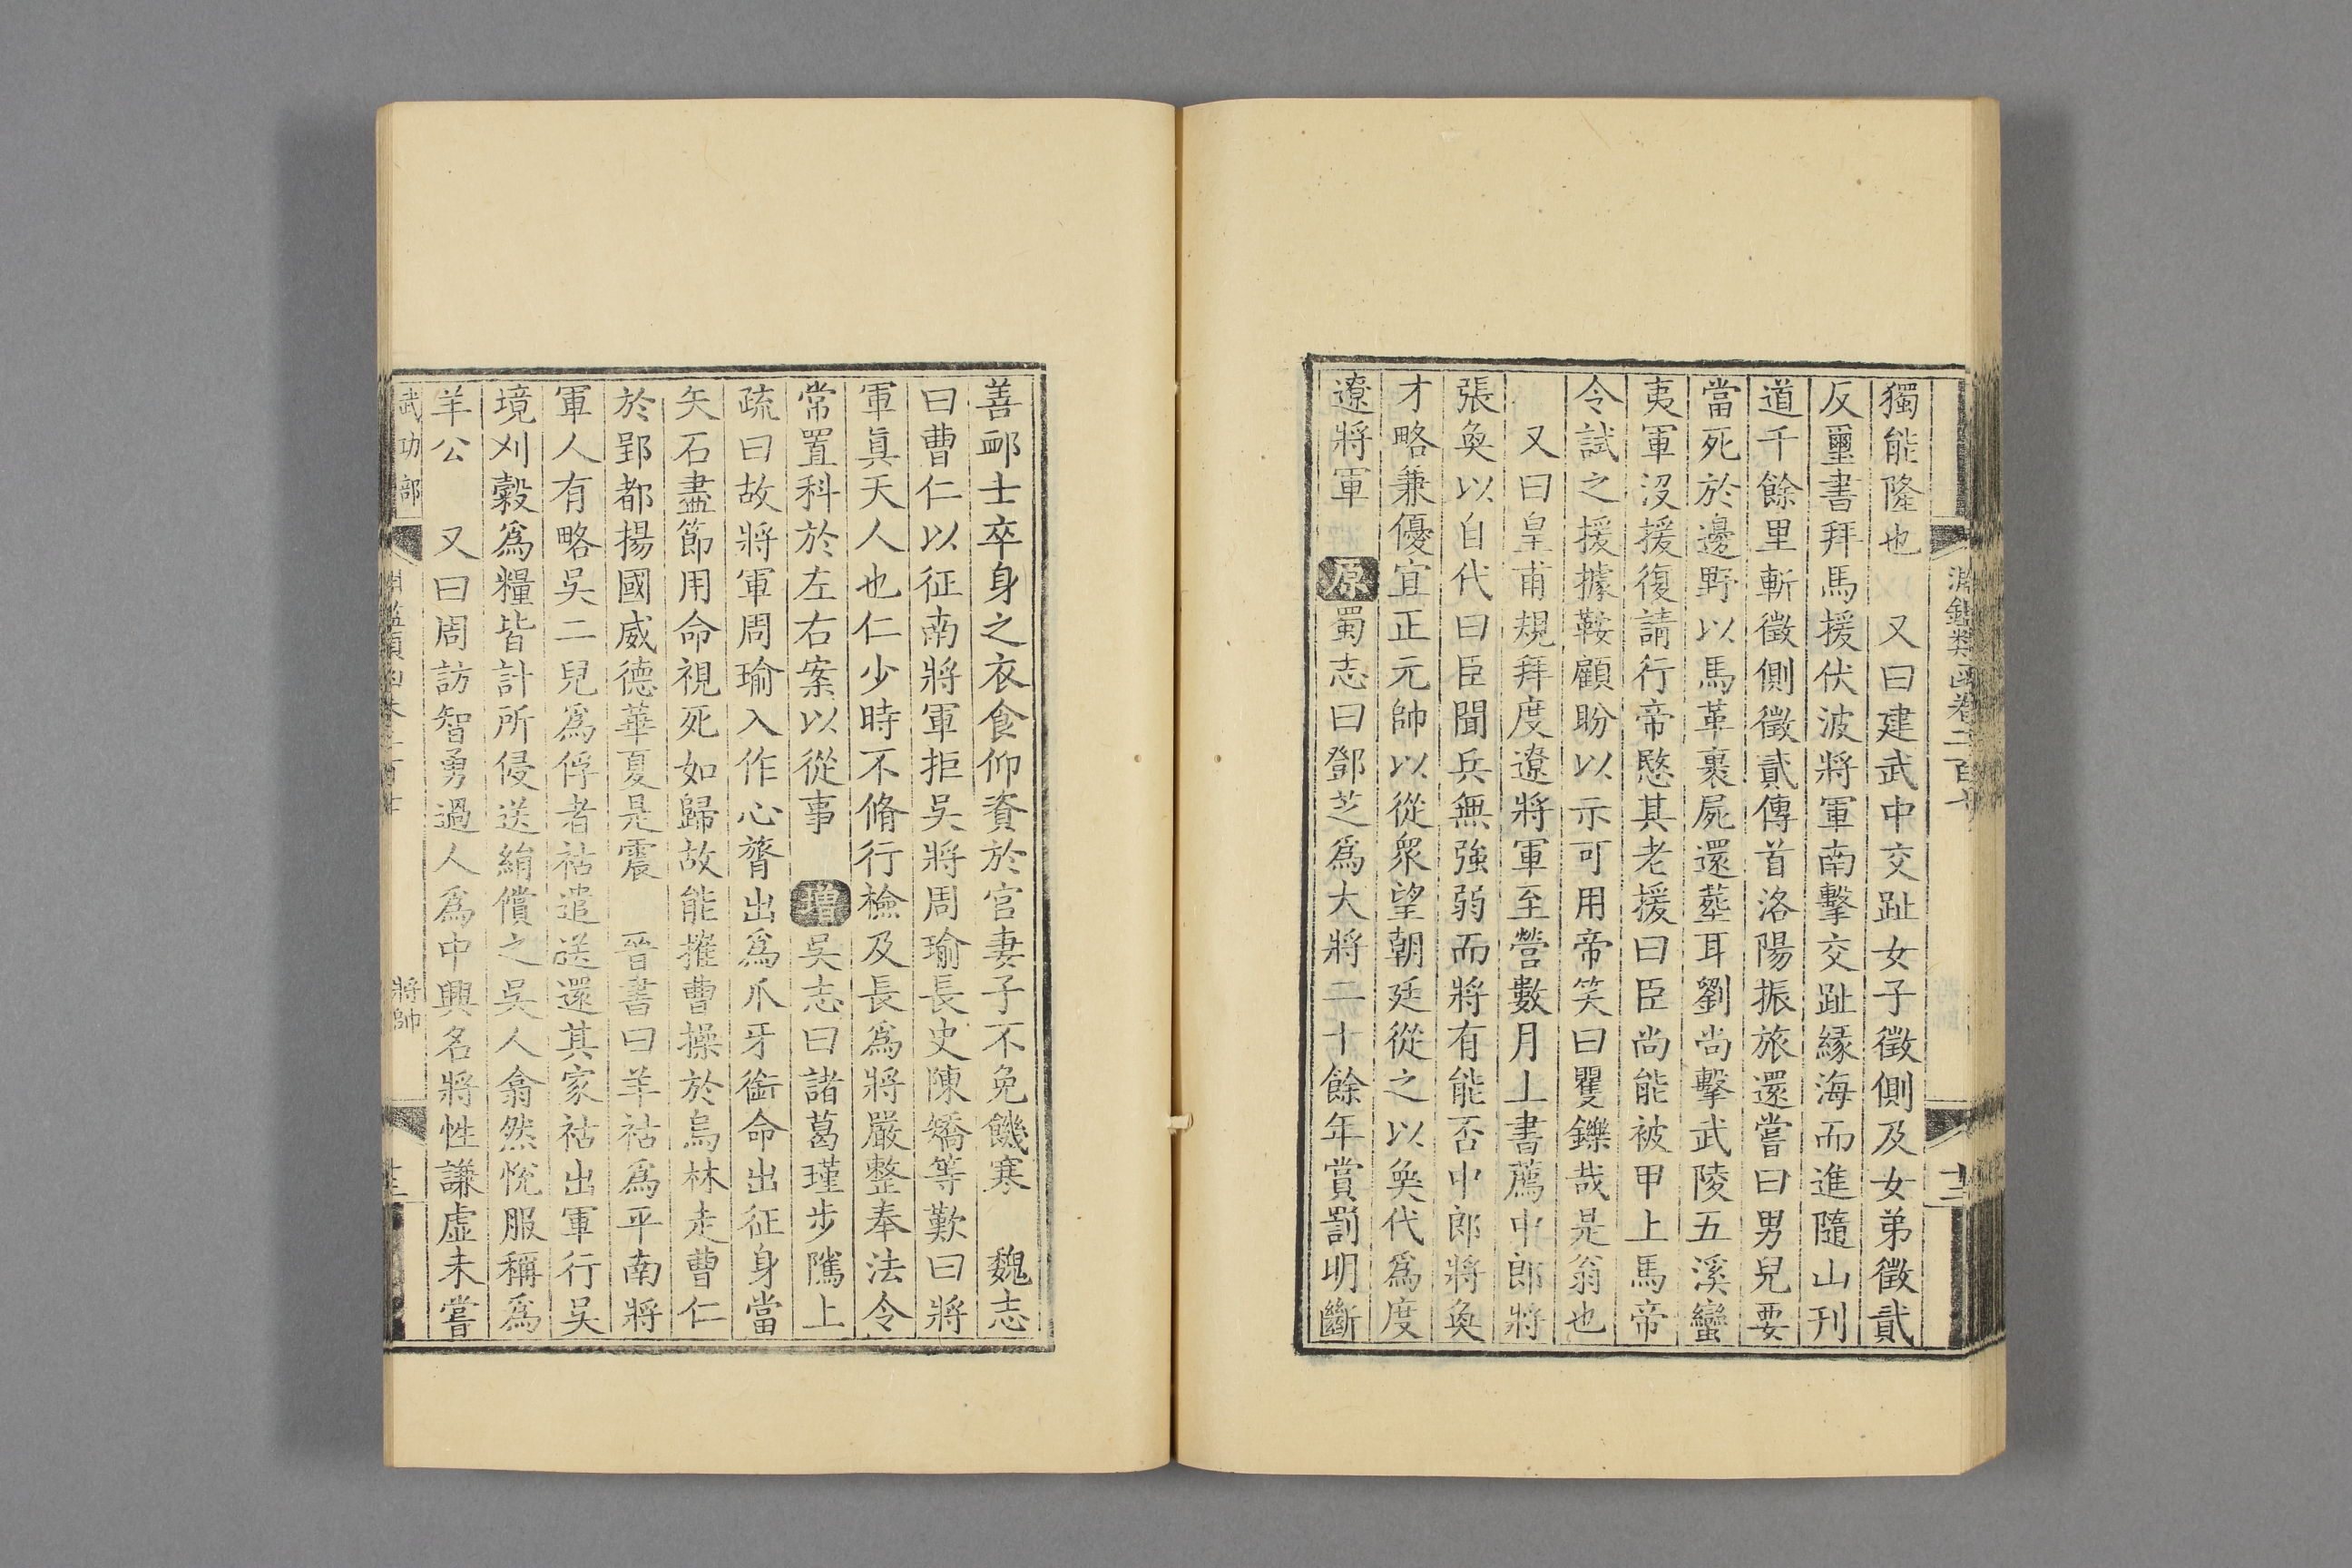 淵鑑類函卷二百十
十二
獨能隆也　又曰建武中交趾女子徵側及女弟徵貳
反璽書拜馬援伏波將軍南擊交趾緣海而進隨山刊
道千餘里斬徵側徵貳傳首洛陽振旅還嘗曰男兒要
當死於邊野以馬革裹屍還塟耳劉尚擊武陵五溪蠻
夷軍沒援復請行帝愍其老援曰臣尚能被甲上馬帝
令試之援據鞍顧盼以示可用帝笑曰矍鑠哉是翁也
又曰皇甫規拜度遼將軍至營數月上書薦中郎將
張奐以自代曰臣聞兵無強弱而將有能否中郎將奐
才略兼優宜正元帥以從衆望朝廷從之以奐代爲度
遼將軍　原蜀志曰鄧芝爲大將二十餘年賞罰明斷
善卹士卒身之衣食仰資於官妻子不免饑寒　魏志
曰曹仁以征南將軍拒吳將周瑜長史陳矯等歎曰將
軍眞天人也仁少時不脩行檢及長爲將嚴整奉法令
常置科於左右案以從事　增吳志曰諸葛瑾步隲上
疏曰故將軍周瑜入作心膂出爲爪牙銜命出征身當
矢石盡節用命視死如歸故能摧曹操於烏林走曹仁
於郢都揚國威德華夏是震　晉書曰羊祜爲平南將
軍人有略吳二兒爲俘者祜遣送還其家祜出軍行吳
境刈穀爲糧皆計所侵送絹償之吳人翕然悅服稱爲
羊公　又曰周訪智勇過人爲中興名將性謙虛未嘗
武功部
將帥